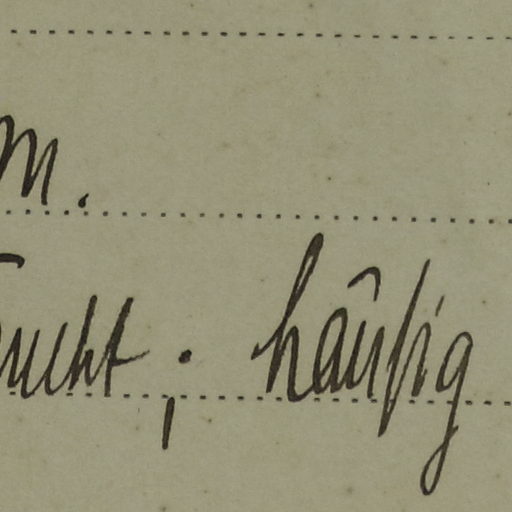 m.
ucht; häufig